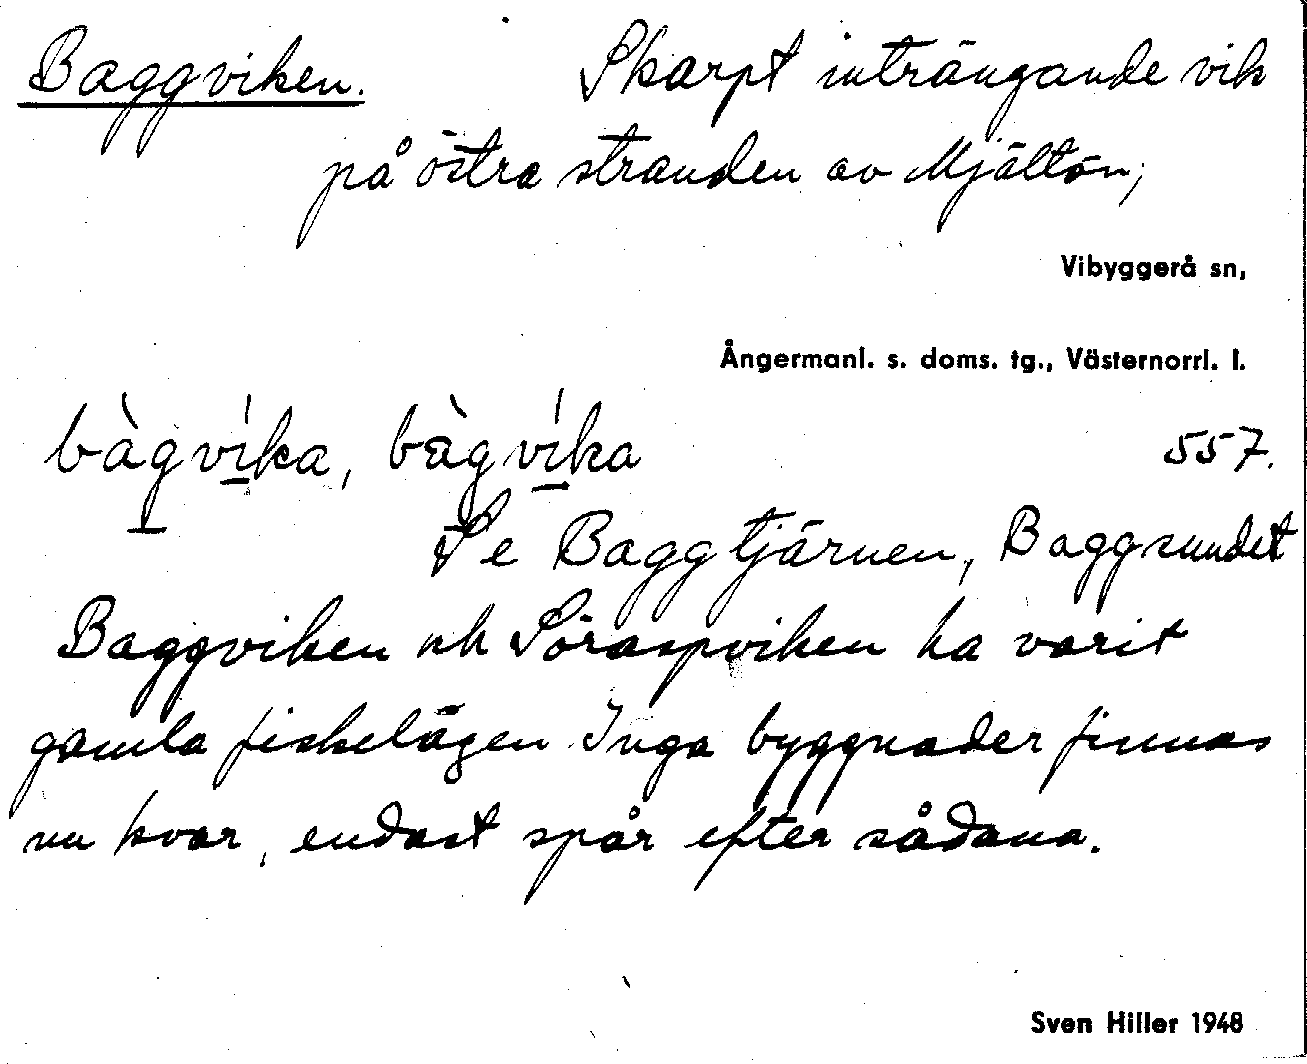 Baggviken. Skarpt inträngande vik
på östra stranden av Mjältön;
Vibyggerå sn,
Ångermanl. s. doms. tg., Västernorrl. l.
bàgvíka, bàgvíka
557.
Se Baggtjärnen, Baggsundet
Baggviken och Söraspviken ha varit
gamla fiskelägen. Inga byggnader finnas
nu kvar, endast spår efter sådana.
Sven Hiller 1948